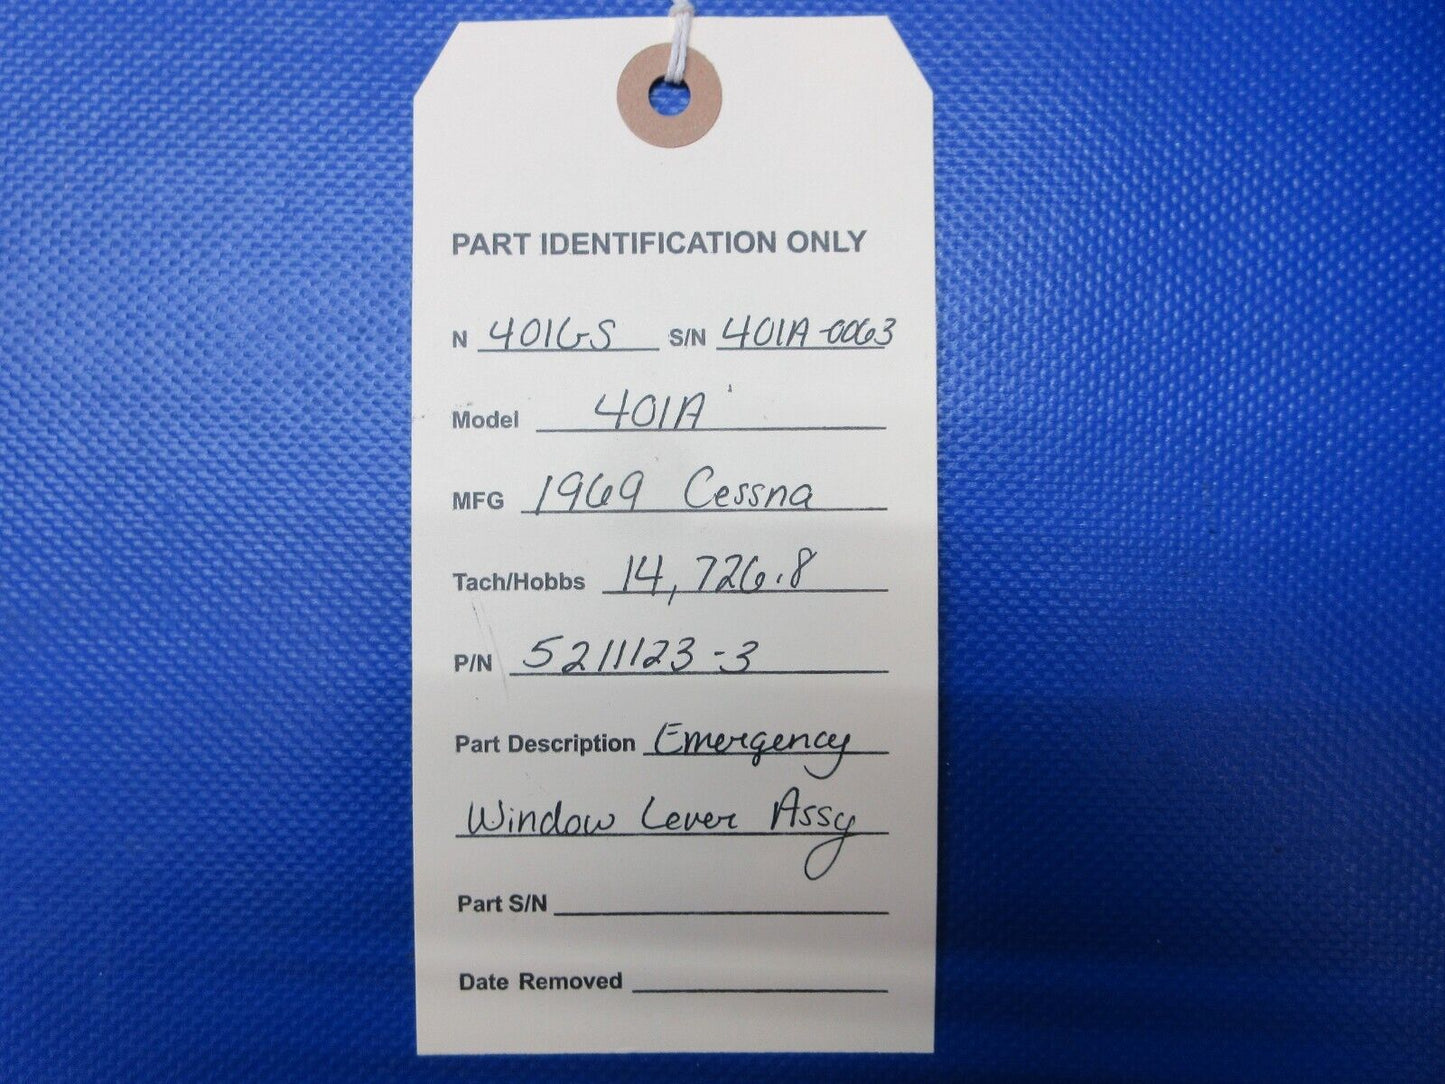 PART IDENTIFICATION ONLY
N 401GS S/N 401A-0063
Model 401A
MFG 1969 Cessna
Tach/Hobbs 14,726.8
P/N 5211123-3
Part Description Emergency
Window Lever Assy
Part S/N
Date Removed